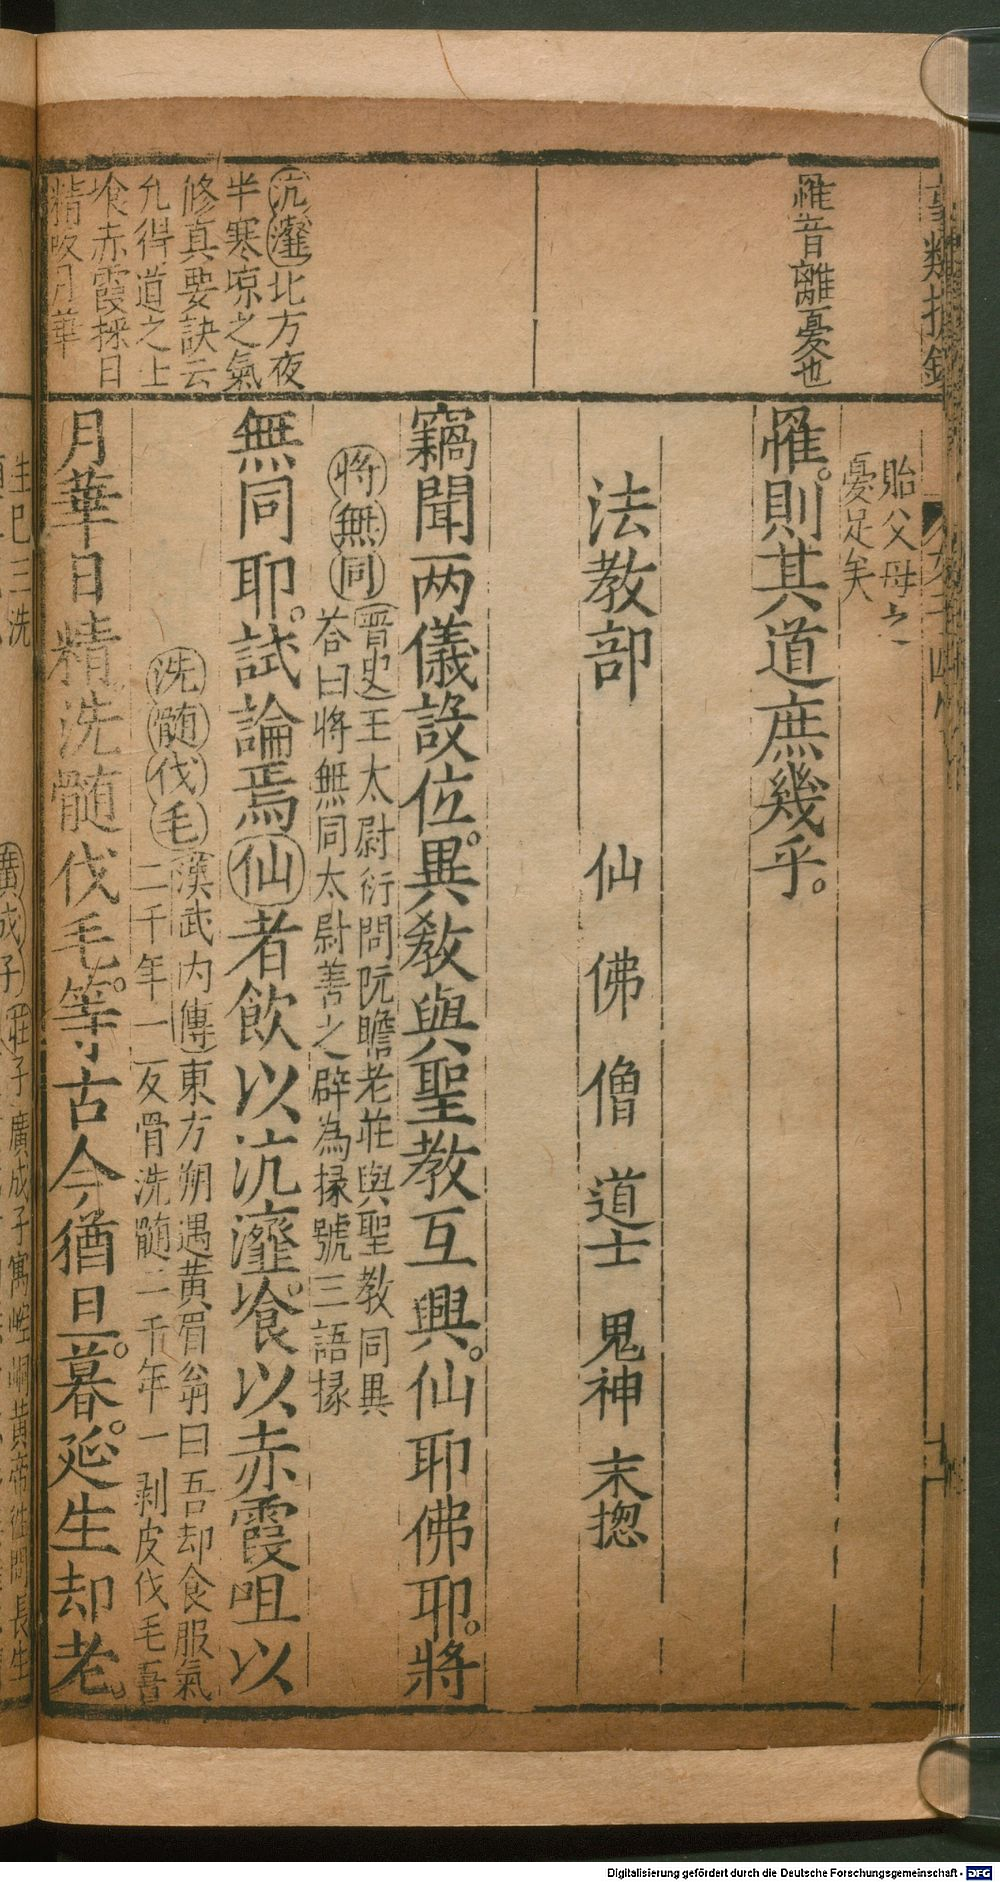 罹音離憂也
沆瀣北方夜
半寒凉之氣
修真要訣云
允得道之上
飡赤霞採日
精吸月華
貽父母之
憂足矣
罹。則其道庶幾乎。
法教部 仙 佛 僧 道士 鬼神 末揔
竊聞兩儀設位。異教與聖教互興。仙耶佛耶。將
將無同 晋史王太尉衍問阮瞻老莊與聖教同異
荅曰將無同太尉善之辟為掾號三語掾
無同耶。試論焉仙者飲以沆瀣。飡以赤霞咀以
洗髄伐毛 漢武内傳東方朔遇黄眉翁曰吾却食服氣
二千年一反骨洗髄二千年一剥皮伐毛吾
月華日精洗髄伐毛。等古今猶旦。暮。延生却老。
生巳三洗
廣成子 莊子廣成子寓崆峒黄帝徃問長生
Digitalisierung gefördert durch die Deutsche Forschungsgemeinschaft - DFG